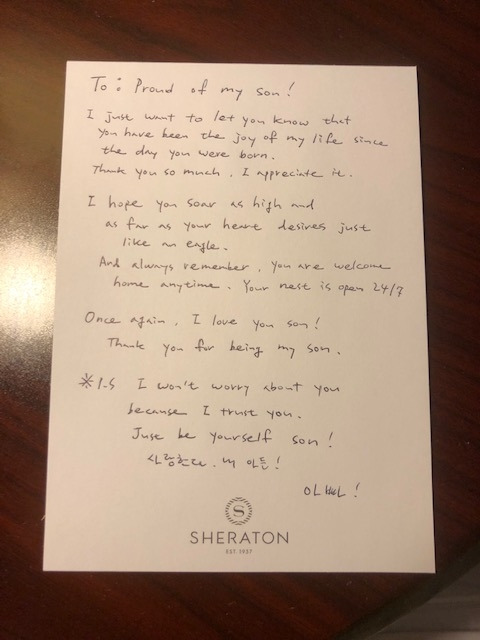 To: Proud of my son!
I just want to let you know that
you have been the joy of my life since
the day you were born.
Thank you so much. I appreciate it.
I hope you soar as high and
as far as your heart desires just
like an eagle.
And always remember, you are welcome
home anytime. Your nest is open 24/7
Once again, I love you son!
Thank you for being my son.
※ P.S I won't worry about you
because I trust you.
Just be yourself son!
사랑한다. 내 아들!
아빠!
S
SHERATON
EST. 1937